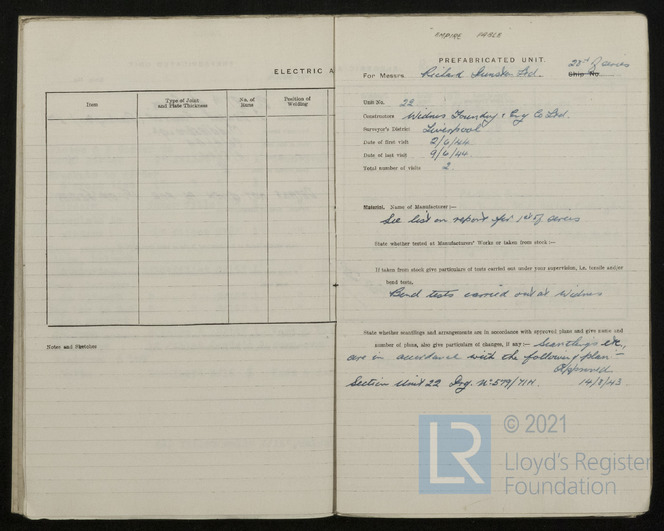 "EMPIRE
PREFABRICATED UNIT.
23rd of series
ELECTRIC A
For Messrs. Richard Dunston Ltd. Ship No.
Item
Type of Joint and Plate Thickness
No. of Runs
Position of Welding
Unit No. 22
Constructors Widnes Foundry & Eng Co Ltd.
Surveyor's District Liverpool
Date of first visit 2/6/44
Date of last visit 9/6/44
Total number of visits 2.
Material. Name of Manufacturer:—
See list on report for 1st of series
State whether tested at Manufacturers' Works or taken from stock:—
If taken from stock give particulars of tests carried out under your supervision, i.e. tensile and/or
bend tests.
Bend tests carried out at Widnes
State whether scantlings and arrangements are in accordance with approved plans and give name and
number of plans, also give particulars of changes, if any:— Scantlings etc.,
are in accordance with the following plan—
Approved
Section Unit 22 Drg. No 579/71H. 14/8/43
Notes and Sketches
LR
© 2021
Lloyd's Register
Foundation